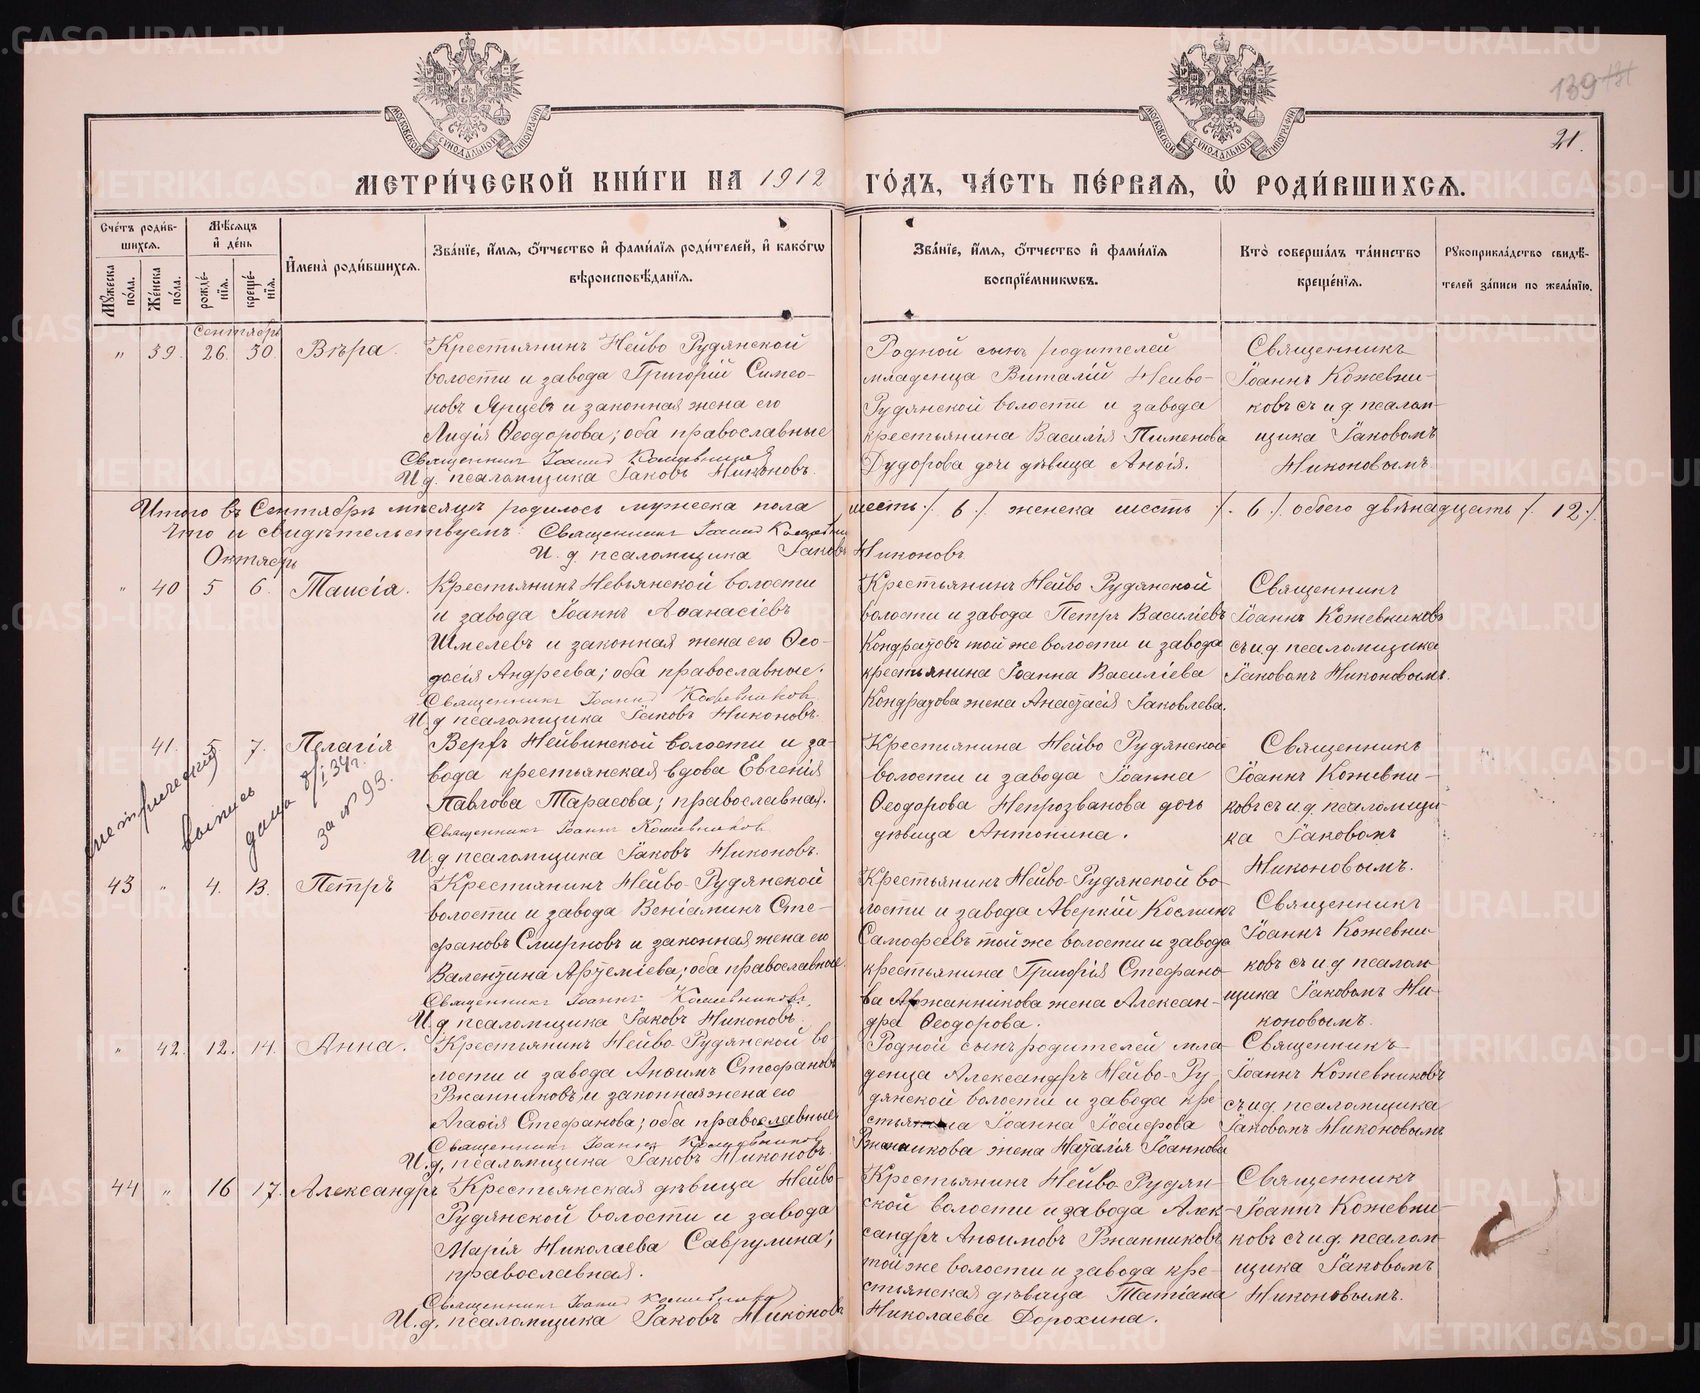 METRIKI.GASO-URAL.RU
139
21.
МОСКОВСКОЙ СѴНОДАЛЬНОЙ ТИПОГРАФІИ
МОСКОВСКОЙ СѴНОДАЛЬНОЙ ТИПОГРАФІИ
МЕТРИ́ЧЕСКОЙ КНИ́ГИ НА 1912 ГО́ДЪ, ЧА́СТЬ ПЕ́РВАЯ, Ѡ҆ РОДИ́ВШИХСѦ.
Сче́тъ роди́в-
шихсѧ.
Мꙋ́жеска по́ла.
Же́нска по́ла.
Мѣ́сѧцъ
и҆ де́нь
рожде́-
нїѧ.
креще́-
нїѧ.
И҆мена̀ роди́вшихсѧ.
Зва́нїе, и҆́мѧ, ѻ҆́тчество и҆ фами́лїѧ роди́телей, и҆ како́гѡ
вѣроисповѣ́данїѧ.
Зва́нїе, и҆́мѧ, ѻ҆́тчество и҆ фами́лїѧ
воспрїе́мникѡвъ.
Кто̀ соверша́лъ та́инство
креще́нїѧ.
Рꙋкоприкла́дство свидѣ́-
телей за́писи по жела́нїю.
Сентябрь
" 39. 26. 30 Вѣра.
Крестьянинъ Нейво Рудянской
волости и завода Григорій Симео-
новъ Ярцевъ и законная жена его
Лидія Ѳеодорова; оба православные
Священникъ Іоаннъ Кожевниковъ
И. д. псаломщика Іаковъ Никоновъ.
Родной сынъ родителей
младенца Виталій Нейво-
Рудянской волости и завода
крестьянина Василія Пименова
Дудорова дочь дѣвица Анѳія.
Священникъ
Іоаннъ Кожевни-
ковъ съ и д. псалом-
щика Іаковомъ
Никоновымъ
Итого въ Сентябрѣ мѣсяцѣ родилось мужеска пола шесть /. 6 ./ женска шесть /. 6 ./ обоего двѣнадцать /. 12 ./
Что и свидѣтельствуемъ: Священникъ Іоаннъ Кожевник
И. д. псаломщика Іаковъ Никоновъ
Октябрь
" 40 5 6. Таисія.
Крестьянинъ Невьянской волости
и завода Іоаннъ Аѳанасіевъ
Шмелевъ и законная жена его Ѳео-
досія Андреева; оба православные.
Священникъ Іоаннъ Кожевников
И. д псаломщика Іаковъ Никоновъ.
Крестьянинъ Нейво Рудянской
волости и завода Петръ Василіевъ
Кондратовъ той же волости и завода
крестьянина Іоанна Василіева
Кондратова жена Анастасія Іаковлева.
Священникъ
Іоаннъ Кожевниковъ
съ и д псаломщика
Іаковомъ Никоновымъ.
41. 5 7. Пелагія
Верхъ Нейвинской волости и за-
вода крестьянская вдова Евгенія
Павлова Тарасова; православная.
Священникъ Іоаннъ Кожевников
И. д псаломщика Іаковъ Никоновъ.
Крестьянина Нейво Рудянской
волости и завода Іоанна
Ѳеодорова Непрозванова дочь
дѣвица Антонина.
Священникъ
Іоаннъ Кожевни-
ковъ съ и д. псаломщи-
ка Іаковомъ
Никоновымъ.
метрическая
выпись
дана 8/I 34 г.
за № 93.
43 " 4. 13. Петръ
Крестьянинъ Нейво-Рудянской
волости и завода Веніаминъ Сте-
фановъ Смирновъ и законная жена его
Валентина Артеміева; оба православные.
Священникъ Іоаннъ Кожевниковъ,
И. д псаломщика Іаковъ Никоновъ.
Крестьянинъ Нейво-Рудянской во-
лости и завода Аверкій Косминъ
Самофеевъ той же волости и завода
крестьянина Григорія Стефано-
ва Аржанникова жена Алексан-
дра Ѳеодорова.
Священникъ
Іоаннъ Кожевни-
ковъ съ и д псалом-
щика Іаковомъ Ни-
коновымъ.
" 42. 12. 14. Анна.
Крестьянинъ Нейво-Рудянской во
лости и завода Анѳимъ Стефановъ
Ржанниковъ и законная жена его
Агаѳія Стефанова; оба православные
Священникъ Іоаннъ Кожевников
И. д. псаломщика Іаковъ Никоновъ.
Родной сынъ родителей мла
денца Александръ Нейво-Ру-
дянской волости и завода кре-
стьянина Іоанна Іосифова
Ржанникова жена Наталія Іоаннова
Священникъ
Іоаннъ Кожевниковъ
съ и д. псаломщика
Іаковомъ Никоновымъ
44 " 16 17. Александръ
Крестьянская дѣвица Нейво-
Рудянской волости и завода
Марія Николаева Саврулина;
православная.
Священникъ Іоаннъ Кожевников
И. д. псаломщика Іаковъ Никоновъ
Крестьянинъ Нейво-Рудян-
ской волости и завода Алек-
сандръ Анѳимовъ Ржанниковъ
той же волости и завода кре-
стьянская дѣвица Татіана
Николаева Дорохина.
Священникъ
Іоаннъ Кожевни-
ковъ съ и.д. псалом-
щика Іаковомъ
Никоновымъ.